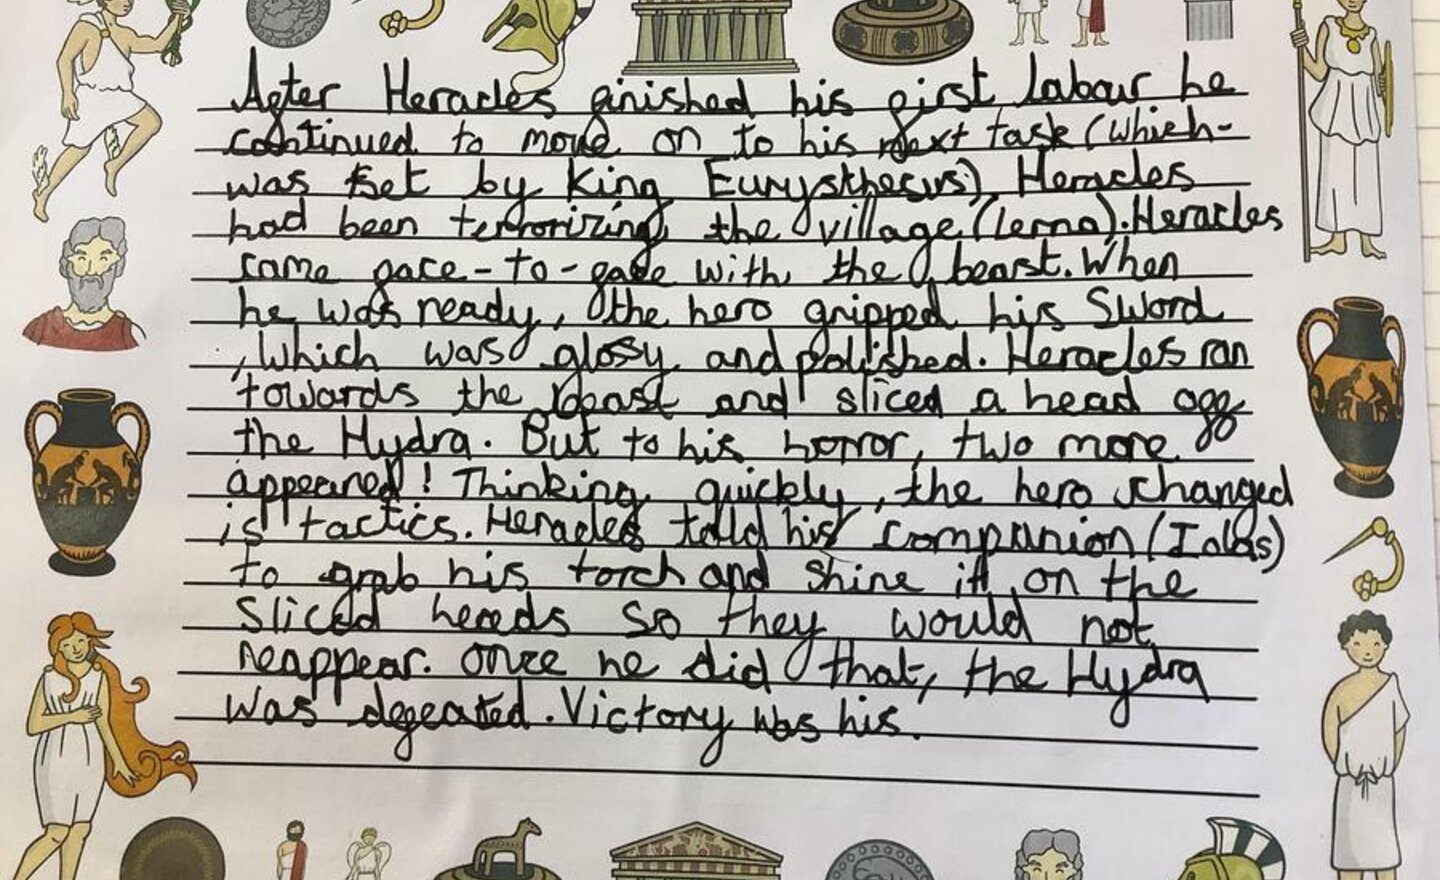 After Heracles finished his first labour he
continued to move on to his next task (which-
was set by King Eurysthecus) Heracles
had been terrorizing the village (lerna). Heracles
came face-to-face with the beast. When
he was ready, the hero gripped his Sword
, Which was glossy and polished. Heracles ran
towards the beast and sliced a head off
the Hydra. But to his horror, two more
appeared! Thinking quickly, the hero changed
is tactics. Heracles told his companion (Iolas)
to grab his torch and shine it on the
Sliced heads so they would not
reappear. Once he did that, the Hydra
was defeated. Victory was his.